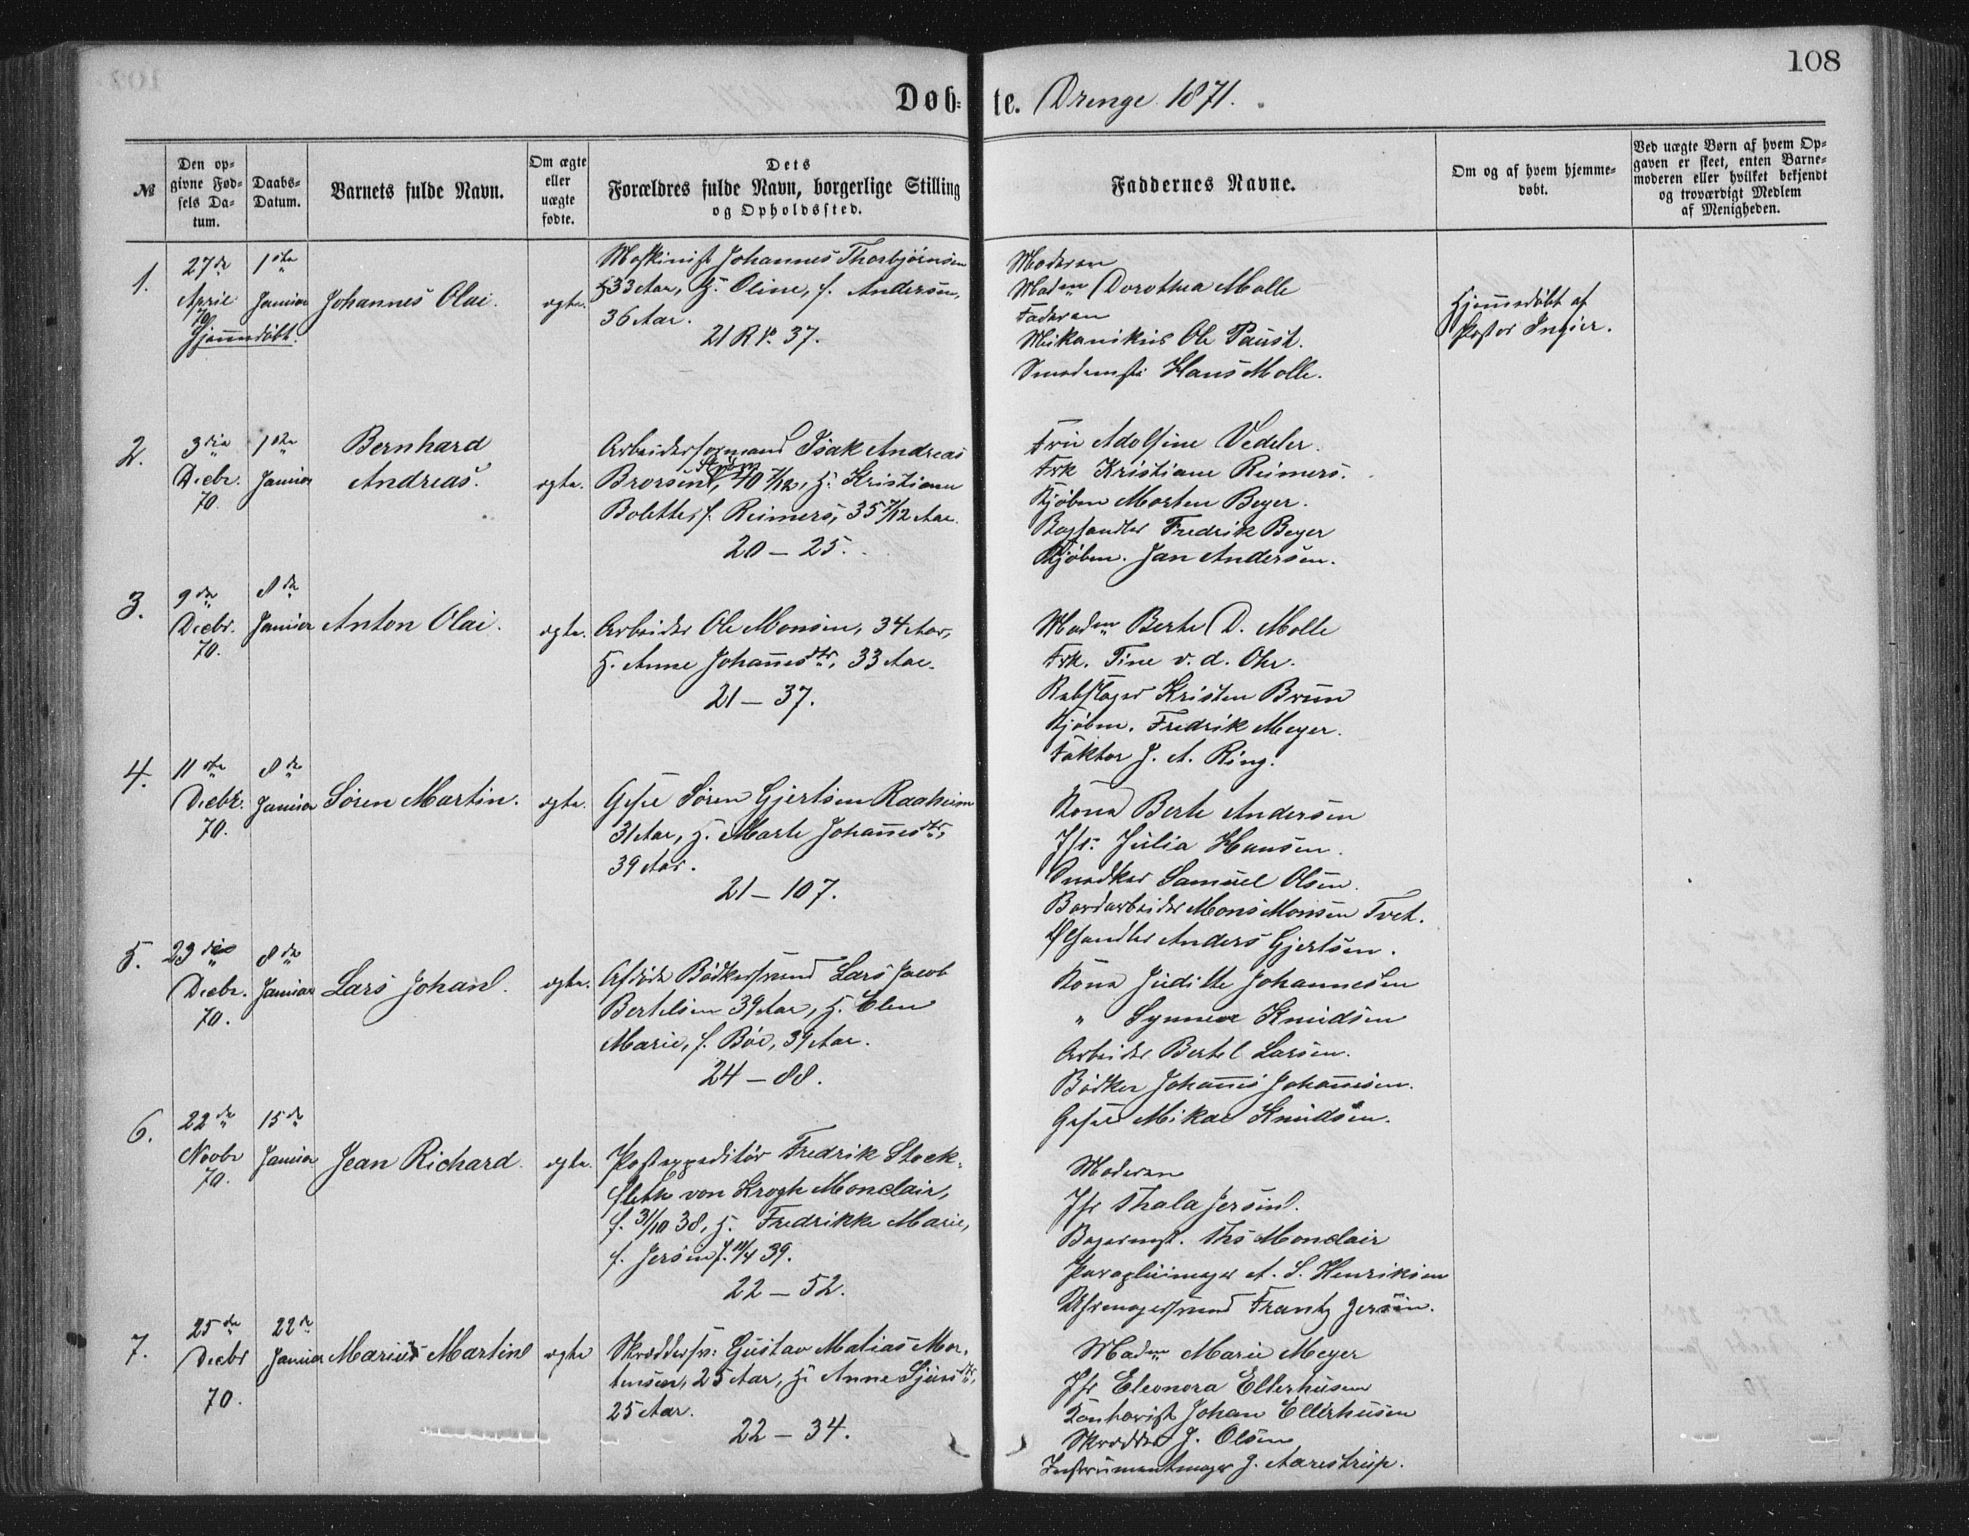 108
Døb-te. Drenge 1871.
№
Den opgivne Fødsels Datum.
Daabs-Datum.
Barnets fulde Navn.
Om ægte eller uægte fødte.
Dets Forældres fulde Navn, borgerlige Stilling og Opholdssted.
Faddernes Navne.
Om og af hvem hjemmedøbt.
Ved uægte Børn af hvem Opgaven er skeet, enten Barnemoderen eller hvilket bekjendt og troværdigt Medlem af Menigheden.
1.
27de April 70
Hjemmedøbt.
1ste Januar
Johannes Olai.
ægte.
Maskinist Johannes Thorbjørnsen
33 Aar, H. Oline, f. Andersen,
36 Aar.
21 R No 37.
Moderen
Madn Dorothea Molle
Faderen
Mekanikus Ole Paust.
Hans Molle.
Hjemmedøbt af
Pastor Ingier.
2.
3die Decbr. 70.
1ste Januar
Bernhard
Andreas.
ægte.
Arbeidsformand Isak Andreas
Brorsen Strøm, 40 7/12, H. Kristiane
Bolette f. Reimers, 35 7/12 Aar.
20 – 25.
Fru Adolfine Vedeler.
Frk Kristiane Reimers.
Kjøbm Morten Beyer.
Boghandler Fredrik Beyer
Kjøbm. Jan Andersen.
3.
9de Decbr. 70.
8de Januar
Anton Olai.
ægte.
Arbeider Ole Monsen, 34 Aar,
H. Anne Johannesdtr, 33 Aar.
21 – 37.
Madn Berte D. Molle
Frk. Tine v. d. Ohe.
Rebslager Kristen Brun
Kjøbm. Fredrik Meyer.
Faktor J. A. Ring.
4.
11te Decbr. 70.
8de Januar
Søren Martin.
ægte.
Søren Gjertsen Raaheim
31 Aar, H. Marte Johannesdtr,
39 Aar.
21 – 107.
Kona Berte Andersen
Jfr. Julia Hansen.
Snedker Samuel Olsen.
Bordarbeider Mons Monsen Tvet.
Ølhandler Anders Gjertsen.
5.
23die Decbr. 70.
8de Januar
Lars Johan.
ægte.
Afdøde Bødkersvend Lars Jacob
Bertelsen 39 Aar, H. Elen
Marie, f. Bøe, 39 Aar.
24 – 88.
Kona Juditte Johannesen
" Synneve Knudsen
Arbeider Bertel Larsen.
Bødker Johannes Johannesen.
Mikal Knudsen.
6.
22de Novbr 70.
15de Januar
Jean Richard.
ægte.
Postexpeditør Fredrik Stock-
fleth von Krogh Monclair,
f. 31/10 38, H. Fredrikke Marie,
f. Jersin f. 11/4 39.
22 – 52.
Moderen
Jfr Thala Jersin.
Bagermst. Ths Monclair
Paraplüimager A. S. Henriksen
Uhrmagersvend Frantz Jersin.
7.
25de Decbr 70.
22de Januar
Marius Martin
ægte
Skræddersv: Gustav Matias Mor-
tensen, 25 Aar, H. Anne Sjursdtr,
25 Aar.
22 – 34.
Madn Marie Meyer
Jfr Eleonora Ellerhusen
Kontorist Johan Ellerhusen
Skrædder J. Olsen
Instrumentmager J. Aarestrup.